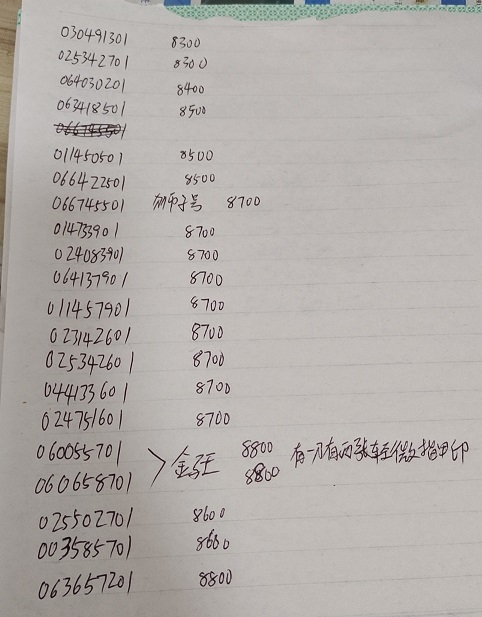 030491301 8300
025342701 8300
064030201 8400
063418501 8500
066745501
011450501 8500
066422501 8500
066745501 狮子号 8700
014733901 8700
024083901 8700
064137901 8700
011457901 8700
023142601 8700
025342601 8700
044133601 8700
024751601 8700
060055701 8800 有一刀有两张轻微指甲印
> 金王
060658701 8800
025502701 8600
003585701 8600
063657201 8800